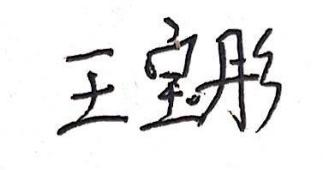 王宝彤